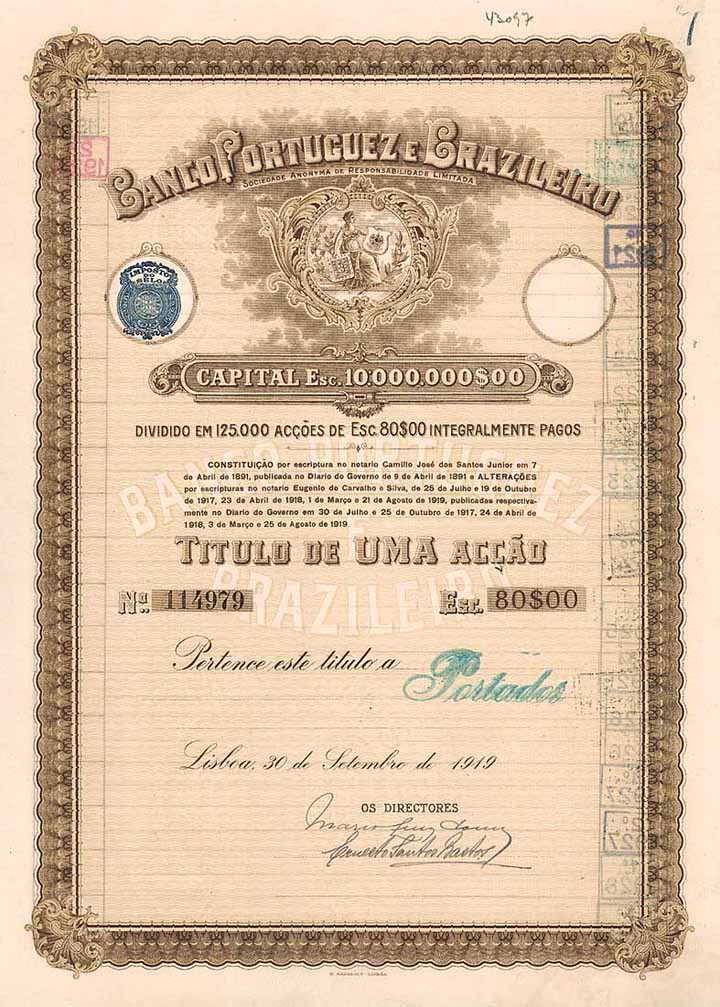 43097
BANCO PORTUGUEZ E BRAZILEIRO
SOCIEDADE ANONYMA DE RESPONSABILIDADE LIMITADA
IMPOSTO DO SELO
CAPITAL Esc. 10.000.000$00
DIVIDIDO EM 125.000 ACÇÕES DE Esc. 80$00 INTEGRALMENTE PAGOS
CONSTITUIÇÃO por escriptura no notario Camillo José dos Santos Junior em 7
de Abril de 1891, publicada no Diario do Governo de 9 de Abril de 1891 e ALTERAÇÕES
por escripturas no notario Eugenio de Carvalho e Silva, de 25 de Julho e 19 de Outubro
de 1917, 23 de Abril de 1918, 1 de Março e 21 de Agosto de 1919, publicadas respectiva-
mente no Diario do Governo em 30 de Julho e 25 de Outubro de 1917, 24 de Abril de
1918, 3 de Março e 25 de Agosto de 1919.
BANCO PORTUGUEZ
E
BRAZILEIRO
TITULO DE UMA ACÇÃO
No. 114979 Esc. 80$00
Pertence este titulo a Portador
Lisboa, 30 de Setembro de 1919
OS DIRECTORES
Ernesto Santos Bastos